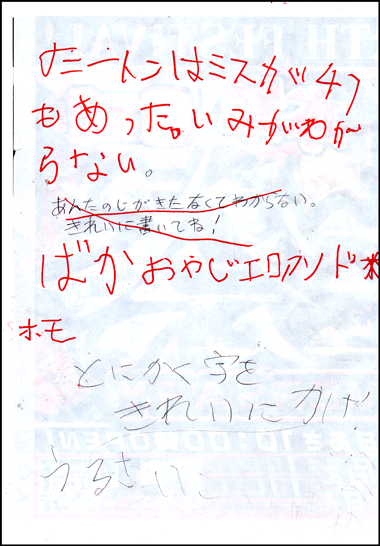 ダニートンはミスが47
もあった。いみがわか
らない。
あんたのじがきたなくてわからない。
きれいに書いてね!
ばかおやじエロアンド
ホモ
とにかく字を
きれいにかけ
うるさい